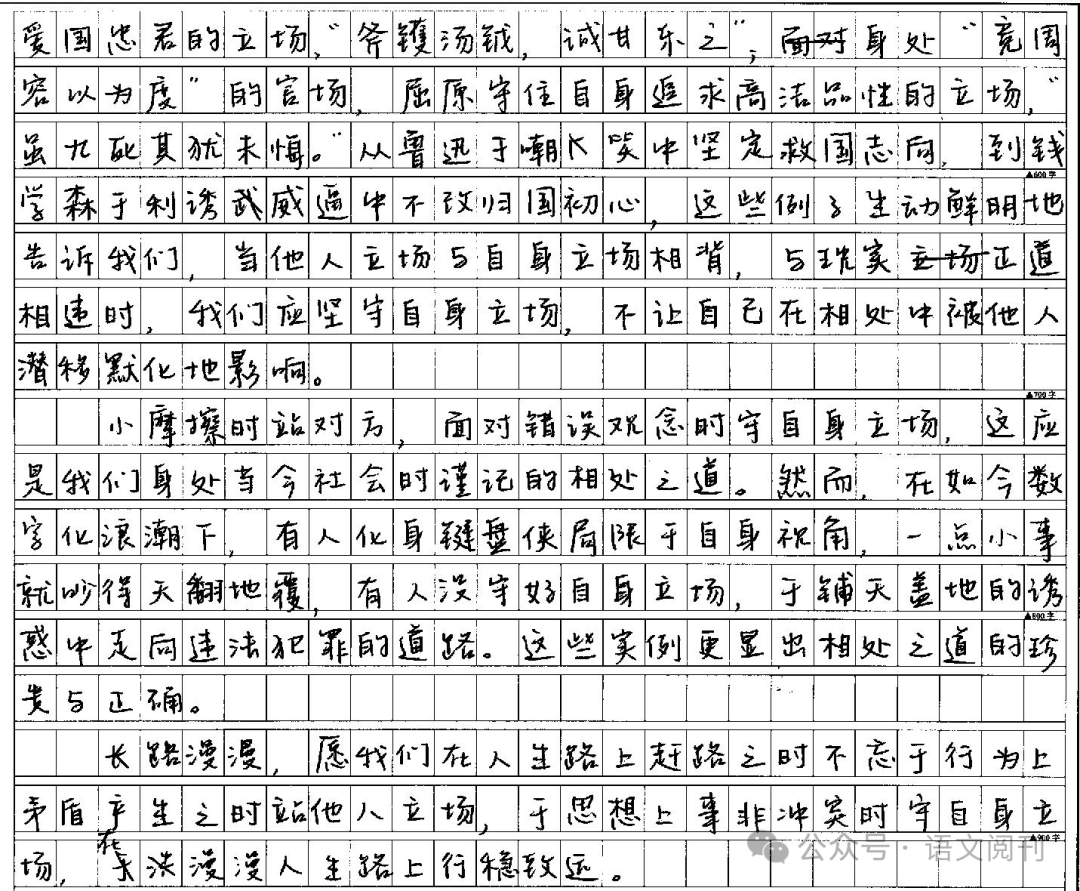 爱国忠君的立场，“斧镬汤钺，诚甘乐之”；面对身处“竞周
容以为度”的官场，屈原守住自身追求高洁品性的立场，“
虽九死其犹未悔。”从鲁迅于嘲笑中坚定救国志向，到钱
▲600字
学森于利诱武威逼中不改归国初心，这些例子生动鲜明地
告诉我们，当他人立场与自身立场相背，与现实立场正道
相违时，我们应坚守自身立场，不让自己在相处中被他人
潜移默化地影响。
▲700字
小摩擦时站对方，面对错误观念时守自身立场，这应
是我们身处当今社会时谨记的相处之道。然而，在如今数
字化浪潮下，有人化身键盘侠局限于自身视角，一点小事
就吵得天翻地覆，有人没守好自身立场，于铺天盖地的诱
▲800字
惑中走向违法犯罪的道路。这些实例更显出相处之道的珍
贵与正确。
长路漫漫，愿我们在人生路上赶路之时不忘于行为上
矛盾产生之时站他人立场，于思想上事非冲突时守自身立
▲900字
场，在漫漫人生路上行稳致远。
公众号·语文阅刊